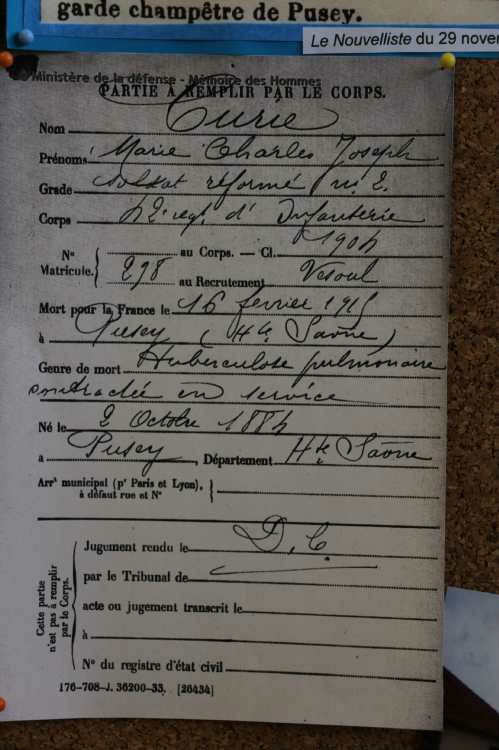 garde champêtre de Pusey.
Le Nouvelliste du 29 nover
Ministère de la défense - Mémoire des Hommes
PARTIE À REMPLIR PAR LE CORPS.
Nom Curie
Prénoms Marie Charles Joseph
Grade Soldat réformé n: 2.
Corps 42e regt. d' Infanterie
N° Matricule. { au Corps. — Cl. 1904
298 au Recrutement Vesoul
Mort pour la France le 16 fevrier 1915
à Pusey (Hte Saône)
Genre de mort Tuberculose pulmonaire
contractée en service
Né le 2 Octobre 1884
à Pusey, Département Hte Saône
Arrt municipal (pr Paris et Lyon),
à défaut rue et N°
Cette partie n'est pas à remplir par le Corps.
Jugement rendu le D.C.
par le Tribunal de
acte ou jugement transcrit le
à
N° du registre d'état civil
176-708-J. 36200-33. [26434]